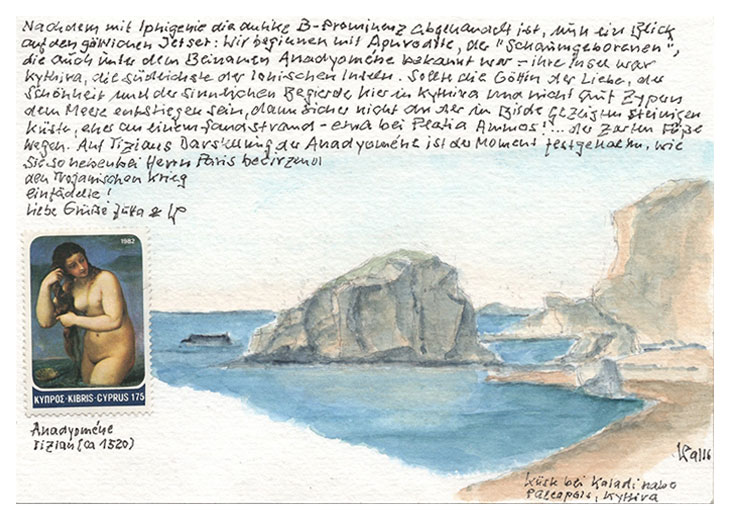 Nachdem mit Iphigenie die antike B-Prominenz abgehandelt ist, nun ein Blick
auf den göttlichen Jetset: Wir beginnen mit Aphrodite, der "Schaumgeborenen",
die auch unter dem Beinamen Anadyoméne bekannt war – ihre Insel war
Kythira, die südlichste der Ionischen Inseln. Sollte die Göttin der Liebe, der
Schönheit und der sinnlichen Begierde hier in Kythira und nicht auf Zypern
dem Meere entstiegen sein, dann sicher nicht an der im Bilde gezeigten steinigen
Küste, eher an einem Sandstrand – etwa bei Platia Ammos! ... der zarten Füße
wegen. Auf Tizians Darstellung der Anadyoméne ist der Moment festgehalten, wie
Sie so nebenbei Herrn Paris becirzend
den Trojanischen Krieg
einfädelte!
Liebe Grüße Jutta &
1982
ΚΥΠΡΟΣ·KIBRIS·CYPRUS 175
Anadyoméne
Tizian (ca 1520)
Küste bei Kaladi nabe
Paleopoli, Kythira